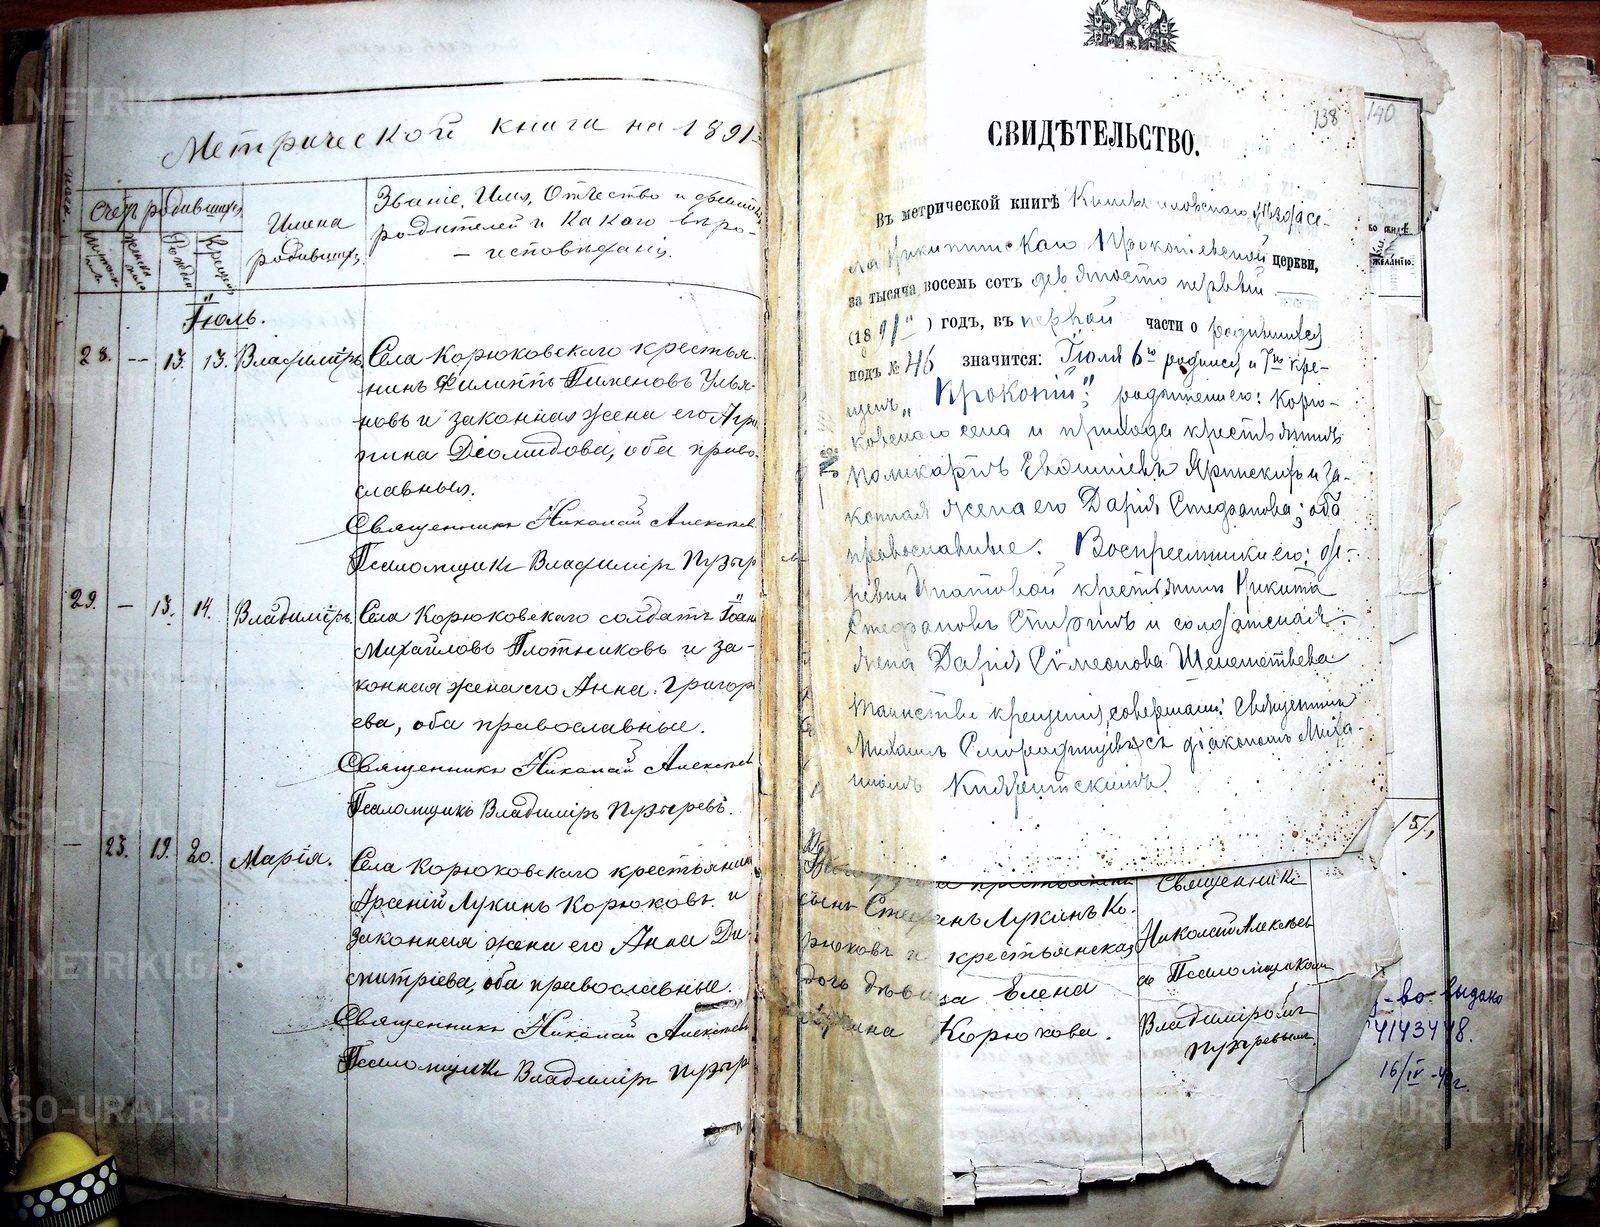 Метрической книги на 1891
Счетъ родившихся
Мужеска
Женска
Рожденія
Крещенія
Имена
родившихся
Званіе, Имя, Отчество и
родителей и какого вѣро-
- исповѣданія.
Іюль.
28. — 13. 13. Владиміръ.
Села Корюковскаго крестья-
нинъ Филиппъ Пименовъ Улья-
новъ и законная жена его Агри
пина Діомидова, оба право-
славныя.
Священникъ Николай Алексѣев
Псаломщикъ Владиміръ Пузыр
29. — 13. 14. Владиміръ.
Села Корюковскаго солдатъ Іоан
Михайловъ Плотниковъ и за-
конная жена его Анна Григорь
ева, оба православные.
Священникъ Николай Алексѣев
Псаломщикъ Владиміръ Пузыревъ.
— 23. 19. 20. Марія.
Села Корюковскаго крестьянин
Арсеній Лукинъ Корюковъ и
законная жена его Анна Ди-
митріева, оба православные.
Священникъ Николай Алексѣев
Псаломщикъ Владиміръ Пузыр
138
140
СВИДѢТЕЛЬСТВО.
Въ метрической книгѣ
церкви,
за тысяча восемь сотъ девяносто первый
(1891 ) годъ, въ первой части о родившихся
подъ № 46 значится: Іюля 6го родился, и 7го кре-
щенъ „Прокопій"; родители его: Корю-
ковскаго села и прихода крестьянинъ
Поликарпъ и за-
конная жена его Дарія Стефанова; оба
православные. Воспріемники его: де-
ревни Ипатовой крестьянинъ Никита
Стефановъ и солдатская
жена Дарія Симеонова Шелементьева
Таинство крещенія совершали: Священникъ
Михаилъ съ діакономъ Миха-
иломъ
во видѣ
желанію.
151,
сынъ Стефанъ Лукинъ Ко-
рюковъ и крестьянская
дочь дѣвица Елена
Корюкова.
Священникъ
Николай Алексѣевъ
съ Псаломщикомъ
Владиміромъ
Пузыревымъ.
-во выдано
4143448.
16/IV